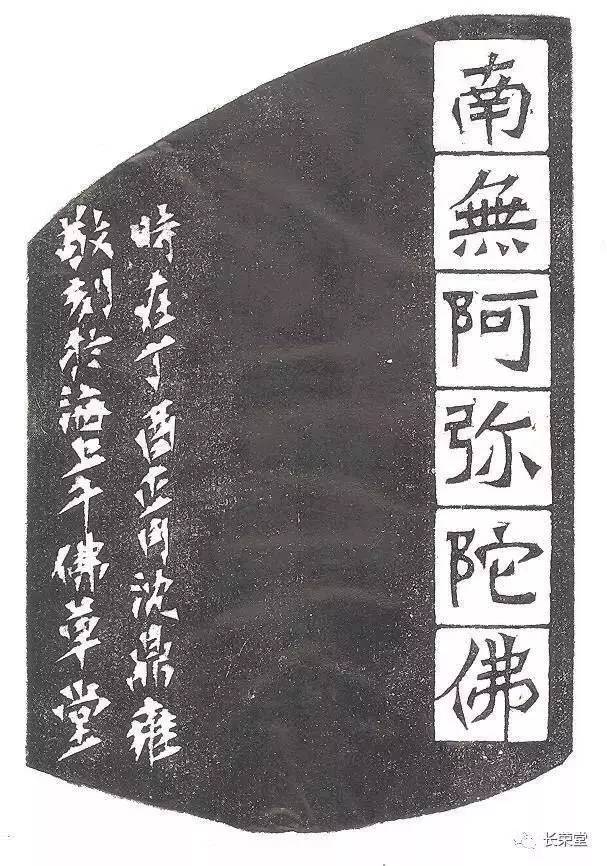 南無阿弥陀佛
時在丁酉正月沈鼎雍
敬刻於海上千佛草堂
长荣堂